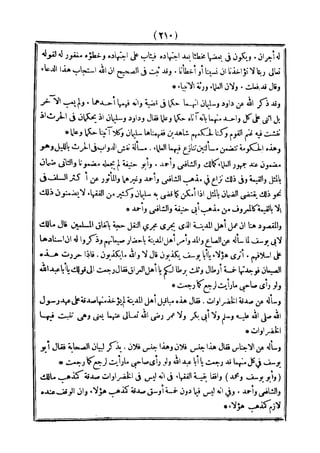 (٢١٠)
له أجران . ويكون فى بعضها مخطئا بعد اجتهاده فيثاب على اجتهاده وخطؤه مغفور له لقوله
تعالى ربنا لا تؤاخذنا ان نسينا أو أخطأنا . وقد ثبت فى الصحيح ان الله استجاب هذا الدعاء
وقال قد فعلت . ولان العلماء ورثة الأنبياء *
وقد ذكر الله عن داود وسليمان انهما حكما فى قضية وانه فهمها أحدهما . ولم يعب الآخر
بل أثنى على كل واحد منهما بانه آتاه حكما وعلما فقال وداود وسليمان اذ يحكمان فى الحرث اذ
نفشت فيه غنم القوم وكنا لحكمهم شاهدين ففهمناها سليمان وكلا آتينا حكما وعلما *
وهذه الحكومة تتضمن مسألتين تنازع فيهما العلماء . مسألة نفش الدواب فى الحرث بالليل وهو
مضمون عند جمهور العلماء كمالك والشافعى وأحمد . وأبو حنيفة لم يجعله مضمونا والثانى ضمان
بالمثل والقيمة وفى ذلك نزاع فى مذهب الشافعى وأحمد وغيرهما والمأثور عن أكثر السلف فى
نحو ذلك يقتضى الضمان بالمثل اذا أمكن كما قضى به سليمان وكثير من الفقهاء لا يضمنون ذلك
الا بالقيمة كالمعروف من مذهب أبى حنيفة والشافعى وأحمد *
والمقصود هنا ان عمل أهل المدينة الذى يجرى مجرى النقل حجة باتفاق المسلمين كما قال مالك
لابى يوسف لما سأله عن الصاع والمد وأمر أهل المدينة باحضار صيعانهم وذكروا له ان اسنادها
عن اسلافهم . أترى هؤلاء يا أبا يوسف يكذبون قال لا والله ما يكذبون . فانا حررت هذه
الصيعان فوجدتها خمسة أرطال وثلث برطالكم يا أهل العراق فقال رجعت الى قولك يا أبا عبد الله
ولو رأى صاحبى ما رأيت لرجع كما رجعت *
وسأله عن صدقة الخضراوات . فقال هذه مباقيل أهل المدينة لم يؤخذ منها صدقة على عهد رسول
الله صلى الله عليه وسلم ولا أبى بكر ولا عمر رضى الله تعالى عنهما يعنى وهى تنبت فيها
الخضراوات *
وسأله عن الاحباس فقال هذا حبس فلان وهذا حبس فلان . يذكر لبيان الصحابة فقال أبو
يوسف فى كل منهما قد رجعت يا أبا عبد الله ولو رأى صاحبى ما رأيت لرجع كما رجعت *
( وأبو يوسف ومحمد ) وافقا بقية الفقهاء فى انه ليس فى الخضراوات صدقة كمذهب مالك
والشافعى وأحمد . وفى انه ليس فيما دون خمسة أوسق صدقة كمذهب هؤلاء . وان الوقف عنده
لازم كمذهب هؤلاء *